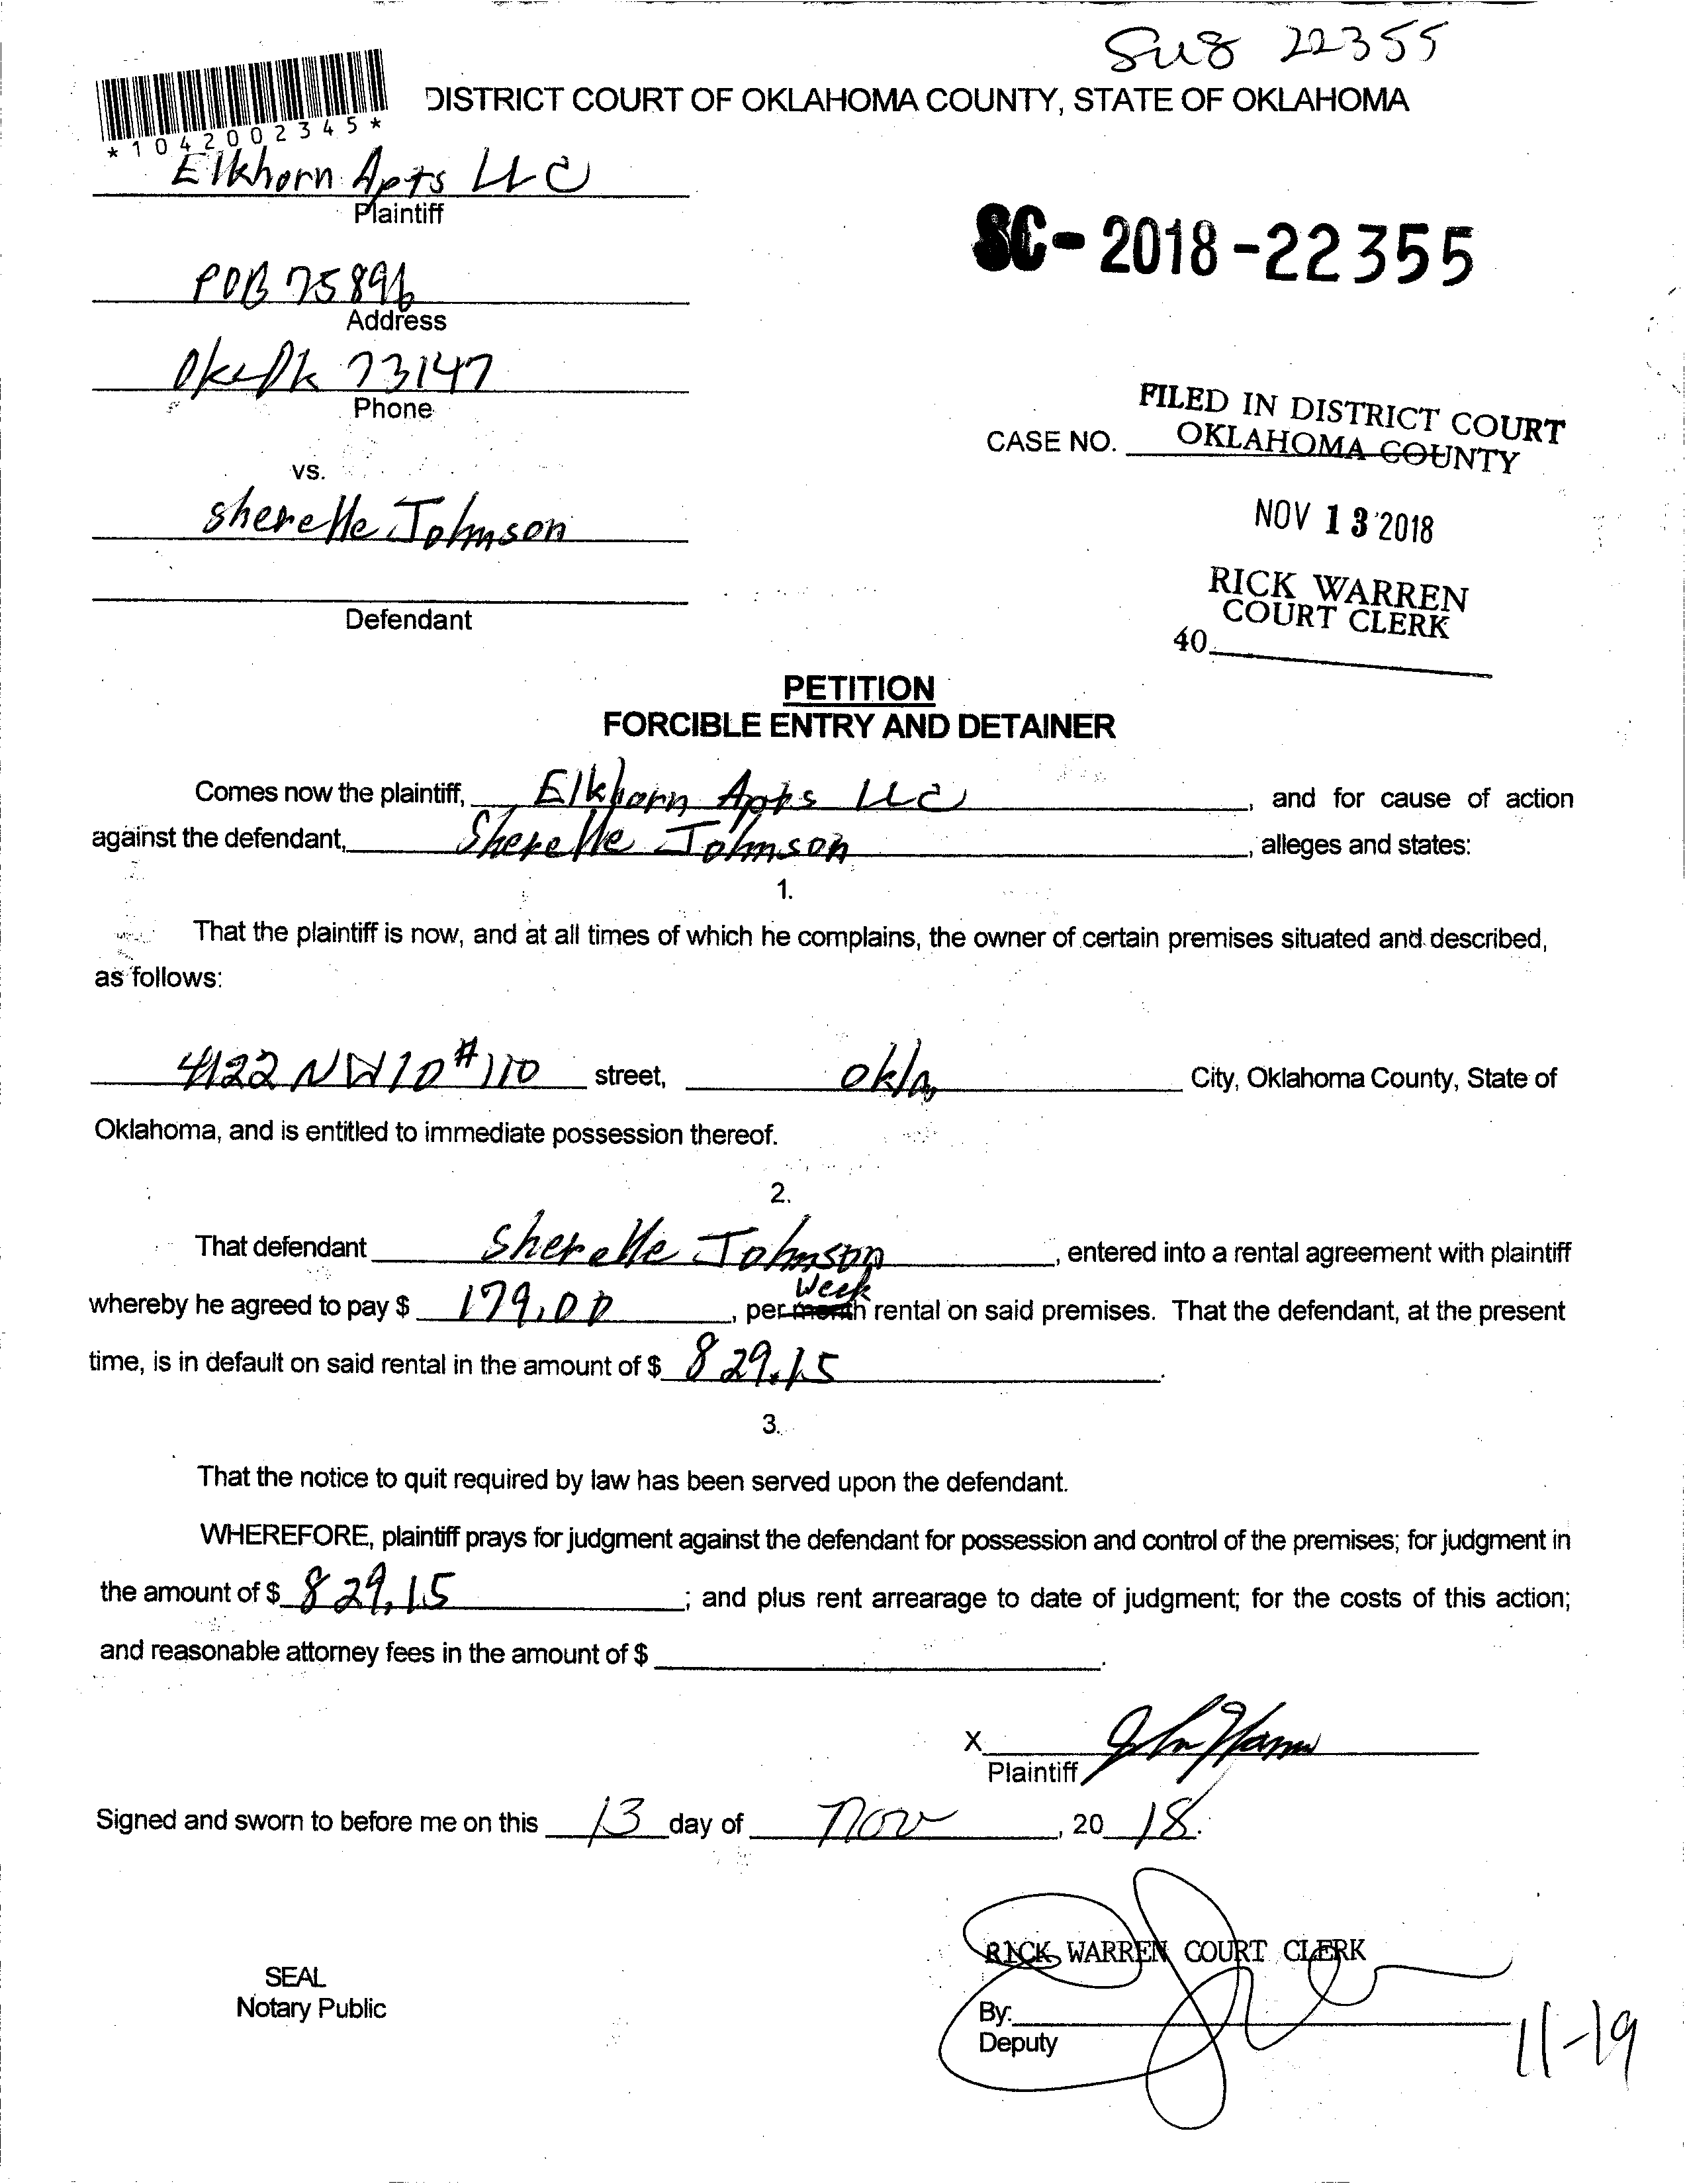 Su8 22355
DISTRICT COURT OF OKLAHOMA COUNTY, STATE OF OKLAHOMA
*1042002345*
Elkhorn Apts LLC
Plaintiff
SC-2018-22355
POB 75896
Address
Okc Ok 73147
Phone
FILED IN DISTRICT COURT
CASE NO. OKLAHOMA COUNTY
vs.
Sherelle Johnson
NOV 13 2018
RICK WARREN
COURT CLERK
Defendant
40
PETITION
FORCIBLE ENTRY AND DETAINER
Comes now the plaintiff, Elkhorn Apts LLC, and for cause of action
against the defendant, Sherelle Johnson, alleges and states:
1.
That the plaintiff is now, and at all times of which he complains, the owner of certain premises situated and described,
as follows:
4122 NW 10 #110 street, Okla, City, Oklahoma County, State of
Oklahoma, and is entitled to immediate possession thereof.
2.
That defendant Sherelle Johnson, entered into a rental agreement with plaintiff
Week
whereby he agreed to pay $ 179.00, per month rental on said premises. That the defendant, at the present
time, is in default on said rental in the amount of $ 829.15.
3.
That the notice to quit required by law has been served upon the defendant.
WHEREFORE, plaintiff prays for judgment against the defendant for possession and control of the premises; for judgment in
the amount of $ 829.15; and plus rent arrearage to date of judgment; for the costs of this action;
and reasonable attorney fees in the amount of $ .
X
Plaintiff
Signed and sworn to before me on this 13 day of Nov, 20 18.
RICK WARREN COURT CLERK
SEAL
Notary Public
By:
Deputy
11-19